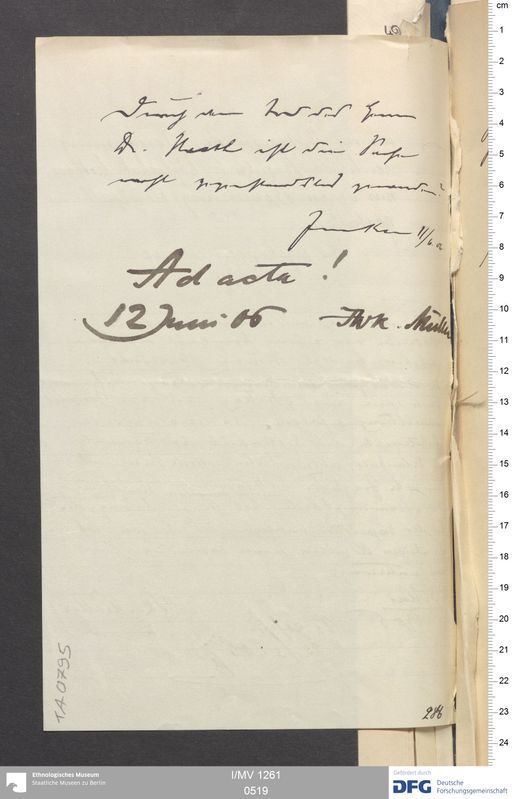 Durch den Tod des Herrn
Dr. ist die Sache
wohl gegenstandslos geworden?
11/6
Ad acta!
12 Juni 06 FWK. Müller
TA0795
286
cm
1
2
3
4
5
6
7
8
9
10
11
12
13
14
15
16
17
18
19
20
21
22
23
24
Ethnologisches Museum
Staatliche Museen zu Berlin
I/MV 1261
0519
Gefördert durch
DFG Deutsche
Forschungsgemeinschaft